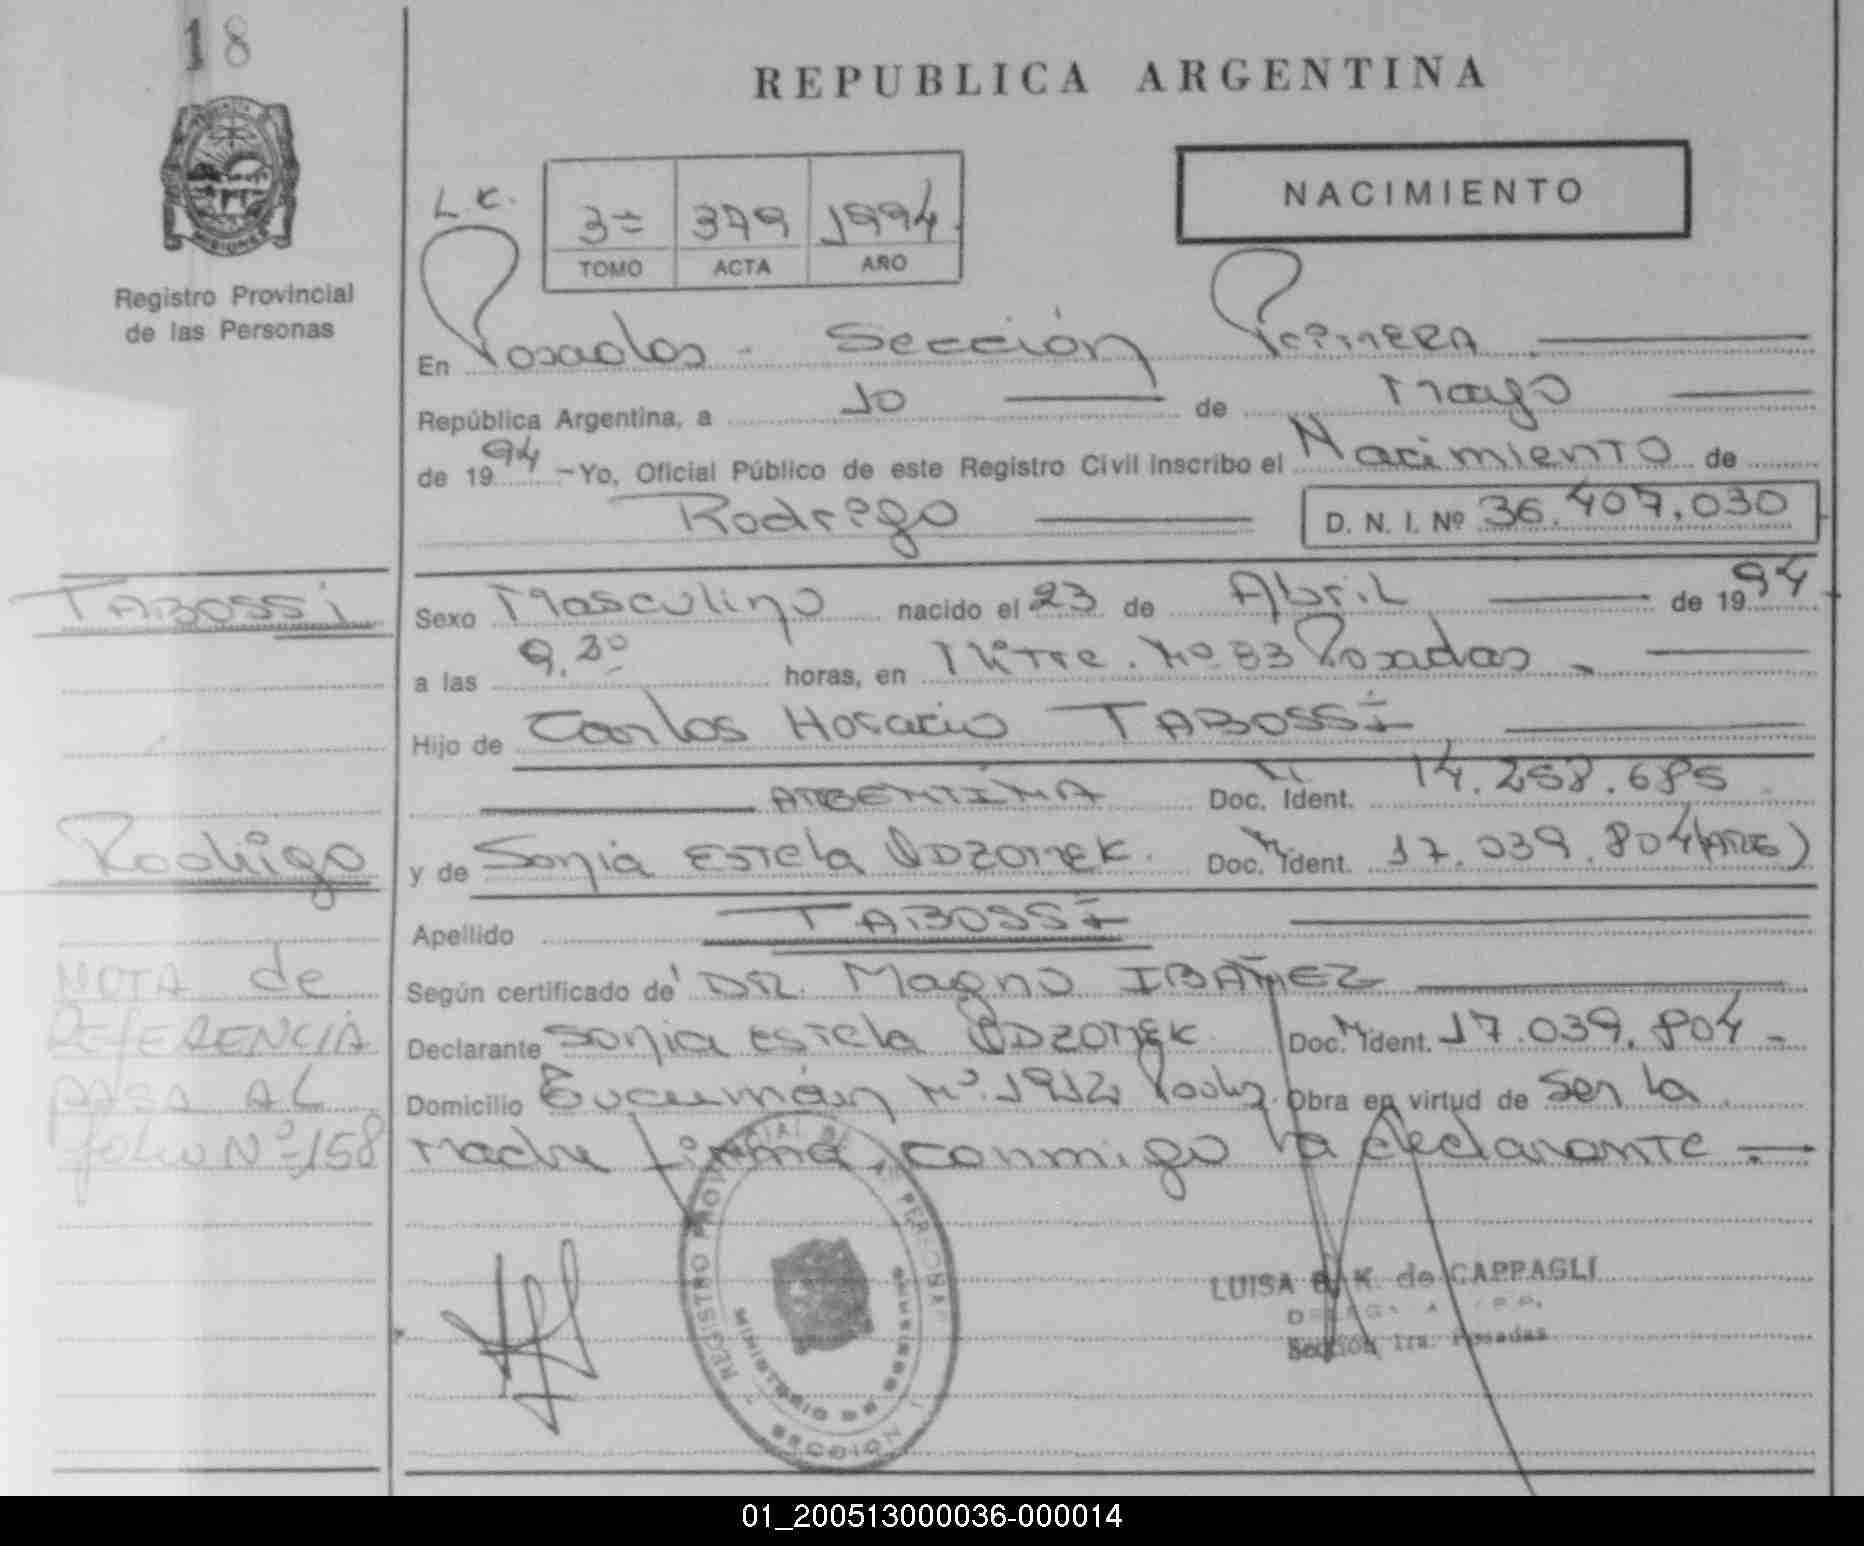 18
REPUBLICA ARGENTINA
NACIMIENTO
L.C.
3ª 379 1994
TOMO ACTA AÑO
Registro Provincial
de las Personas
En Posadas - Sección Primera
República Argentina, a 10 de Mayo
de 1994 - Yo, Oficial Público de este Registro Civil inscribo el Nacimiento de
Rodrigo D. N. I. Nº 36.407.030
TABOSSI
Sexo Masculino nacido el 23 de Abril de 1994
a las 9.30 horas, en Mitre. Nº 83 Posadas.
Hijo de Carlos Horacio TABOSSI
ARGENTINA Doc. Ident. 14.258.685
Rodrigo
y de Sonia Estela ODZOMEK. Doc. Ident. 17.039.804 (ARG)
Apellido TABOSSI
Según certificado de DR. Magno IBAÑEZ
Declarante Sonia Estela ODZOMEK. Doc. Ident. 17.039.804-
Domicilio Tucumán Nº 1912 Posadas. Obra en virtud de Ser la
Madre firma conmigo la declarante.
NOTA de
REFERENCIA
PASA AL
folio Nº 158
REGISTRO PROVINCIAL DE LAS PERSONAS
MINISTERIO DE GOBIERNO
SECCION 1
LUISA B. K. de CAPPAGLI
Sección 1ra. Posadas
01_200513000036-000014